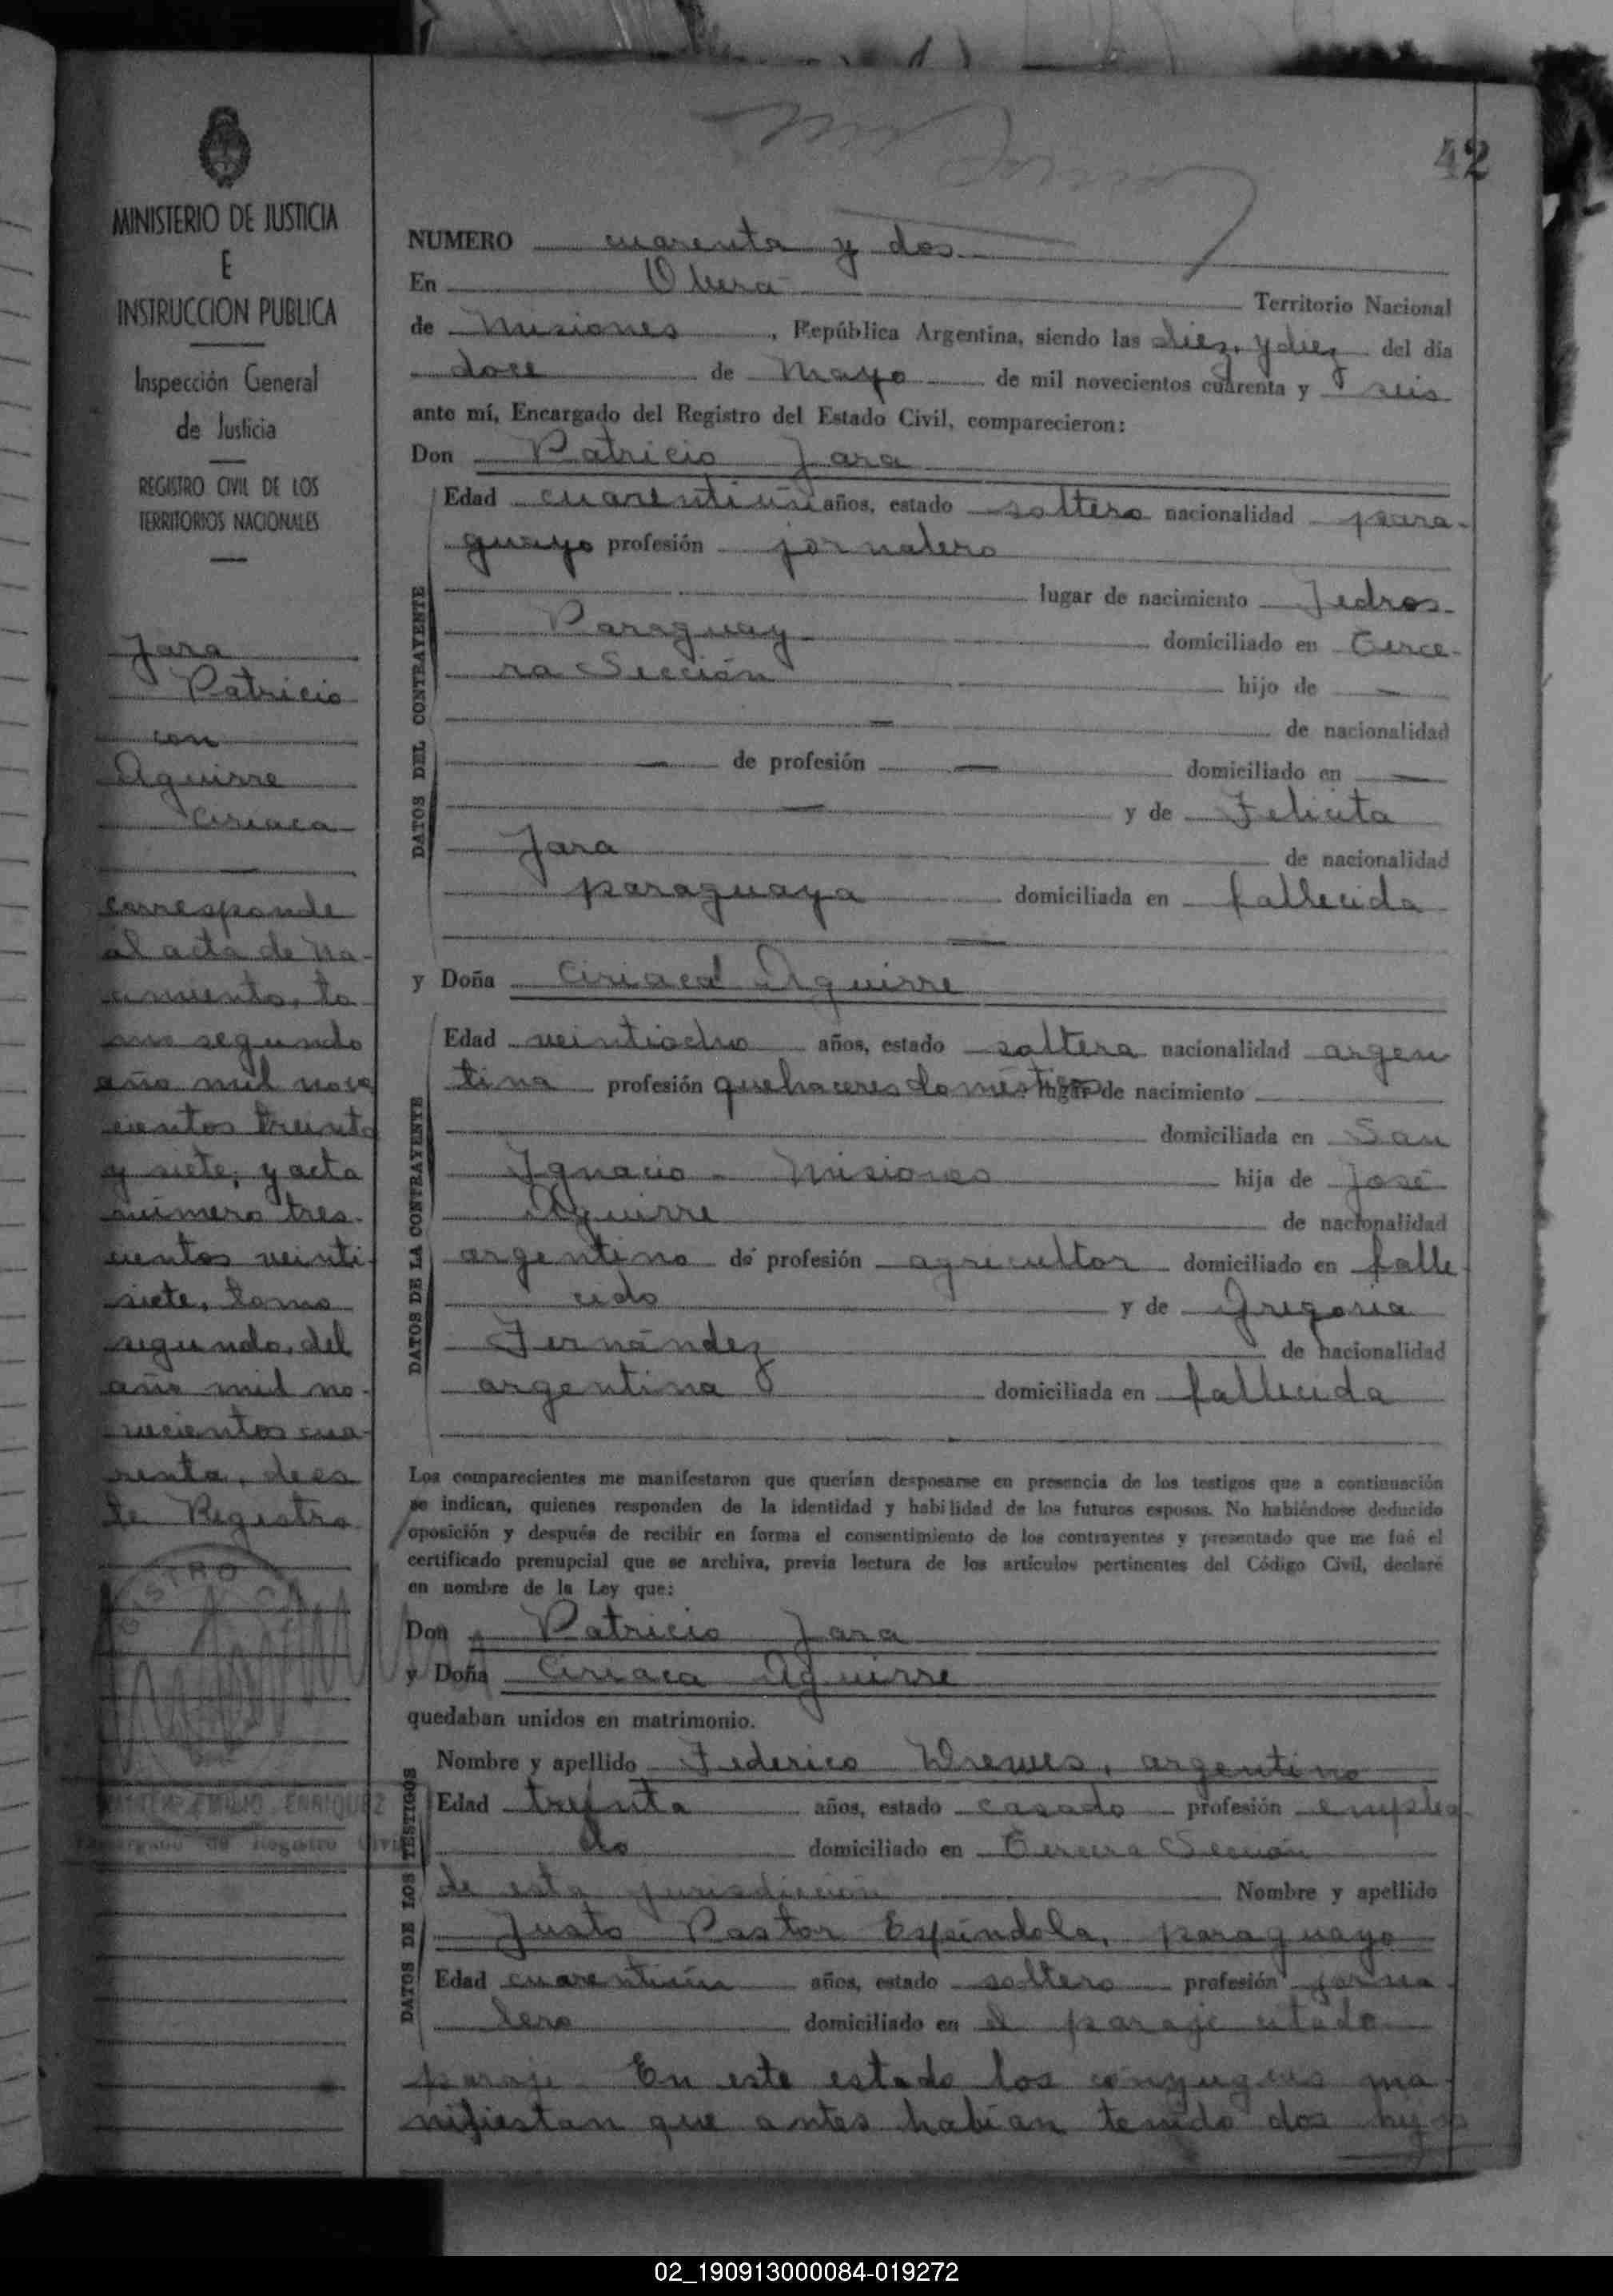 42
MINISTERIO DE JUSTICIA
E
INSTRUCCION PUBLICA
Inspección General
de Justicia
REGISTRO CIVIL DE LOS
TERRITORIOS NACIONALES
Jara
Patricio
con
Aguirre
Ciriaca
corresponde
al acta de na-
cimiento, to
mo segundo
año mil nove
cientos treinta
y siete, y acta
número tres-
cientos veinti-
siete, tomo
segundo, del
año mil no-
vecientos cua-
renta, de es
te Registro
EMILIO ENRIQUEZ
Encargado de Registro Civil
NUMERO cuarenta y dos
En Obera Territorio Nacional
de Misiones, República Argentina, siendo las diez, y diez del día
doce de Mayo de mil novecientos cuarenta y seis
ante mí, Encargado del Registro del Estado Civil, comparecieron:
Don Patricio Jara
DATOS DEL CONTRAYENTE
Edad cuarentiún años, estado soltero nacionalidad para-
guayo profesión jornalero
lugar de nacimiento
Paraguay domiciliado en Terce-
ra Sección hijo de —
— de nacionalidad
— de profesión — domiciliado en —
— y de Felicita
Jara de nacionalidad
paraguaya domiciliada en fallecida
y Doña Ciriaca Aguirre
DATOS DE LA CONTRAYENTE
Edad veintiocho años, estado soltera nacionalidad argen
tina profesión quehaceres domésticos lugar de nacimiento
domiciliada en San
Ignacio - Misiones hija de José
Aguirre de nacionalidad
argentino de profesión agricultor domiciliado en falle
cido y de Gregoria
Fernández de nacionalidad
argentina domiciliada en fallecida
Los comparecientes me manifestaron que querían desposarse en presencia de los testigos que a continuación
se indican, quienes responden de la identidad y habilidad de los futuros esposos. No habiéndose deducido
oposición y después de recibir en forma el consentimiento de los contrayentes y presentado que me fué el
certificado prenupcial que se archiva, previa lectura de los artículos pertinentes del Código Civil, declaré
en nombre de la Ley que:
Don Patricio Jara
y Doña Ciriaca Aguirre
quedaban unidos en matrimonio.
DATOS DE LOS TESTIGOS
Nombre y apellido Federico argentino
Edad treinta años, estado casado profesión emplea-
do domiciliado en Tercera Sección
de esta jurisdicción Nombre y apellido
Justo Pastor Espíndola, paraguayo
Edad cuarentiún años, estado soltero profesión jorna-
lero domiciliado en el paraje citado
paraje. En este estado los conyugues ma-
nifiestan que antes habían tenido dos hijos
02_190913000084-019272